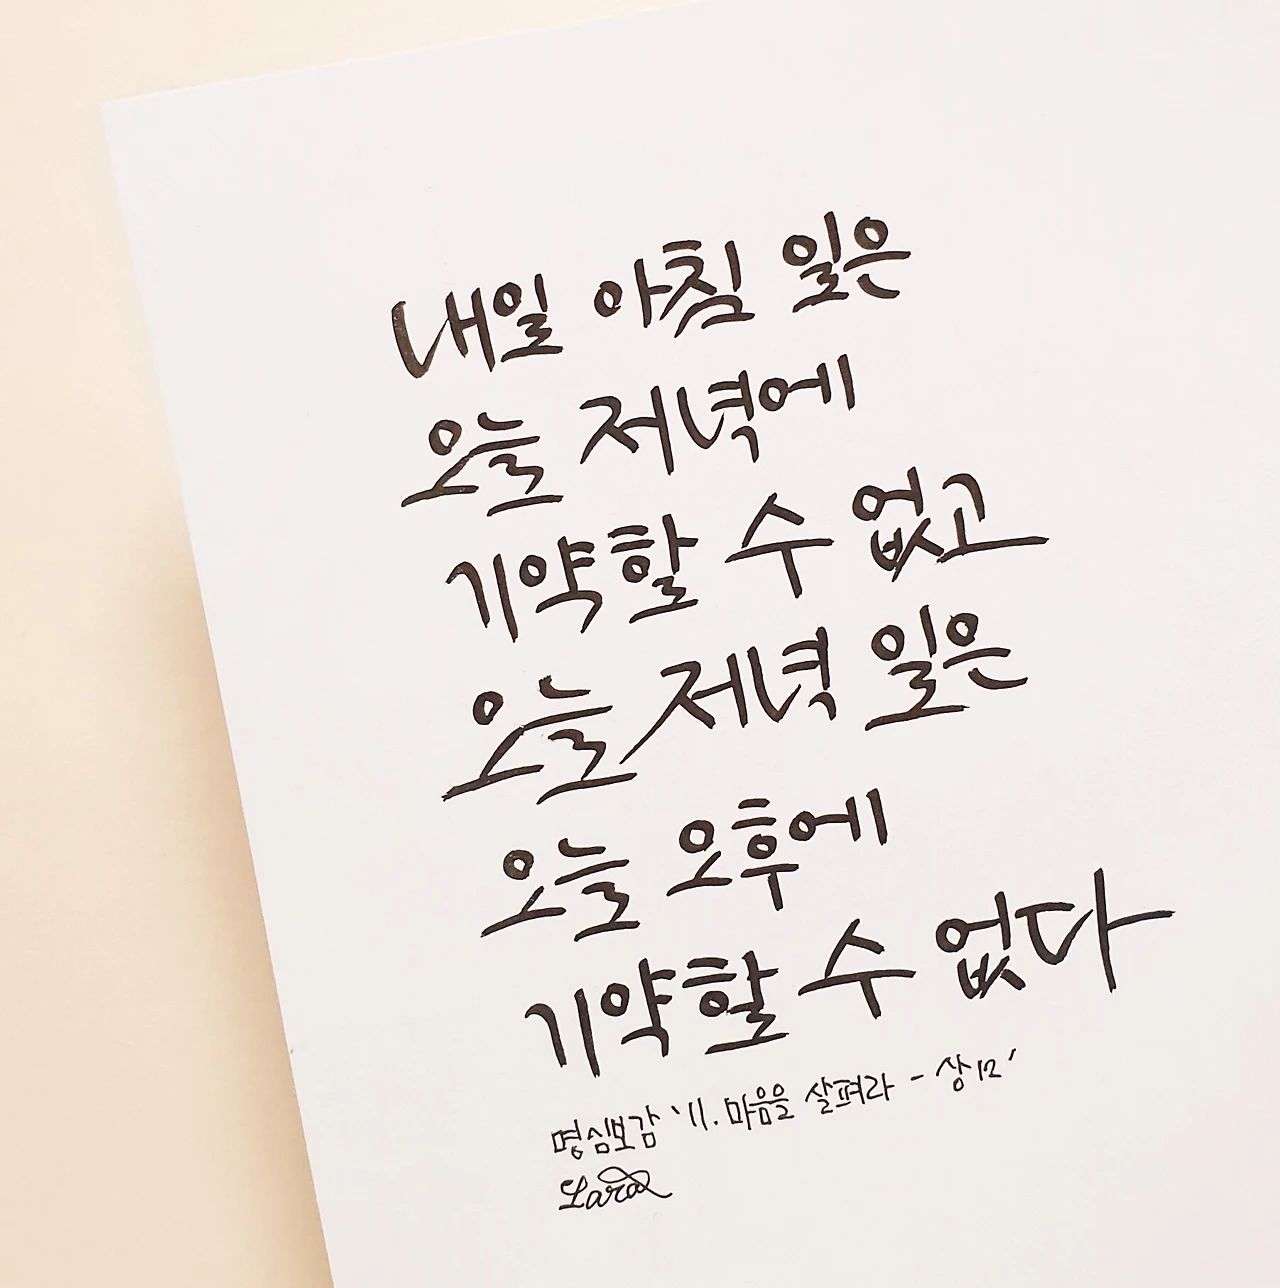 내일 아침 일은
오늘 저녁에
기약할 수 없고
오늘 저녁 일은
오늘 오후에
기약할 수 없다
명심보감 '11. 마음을 살펴라 - 상12'
Lara